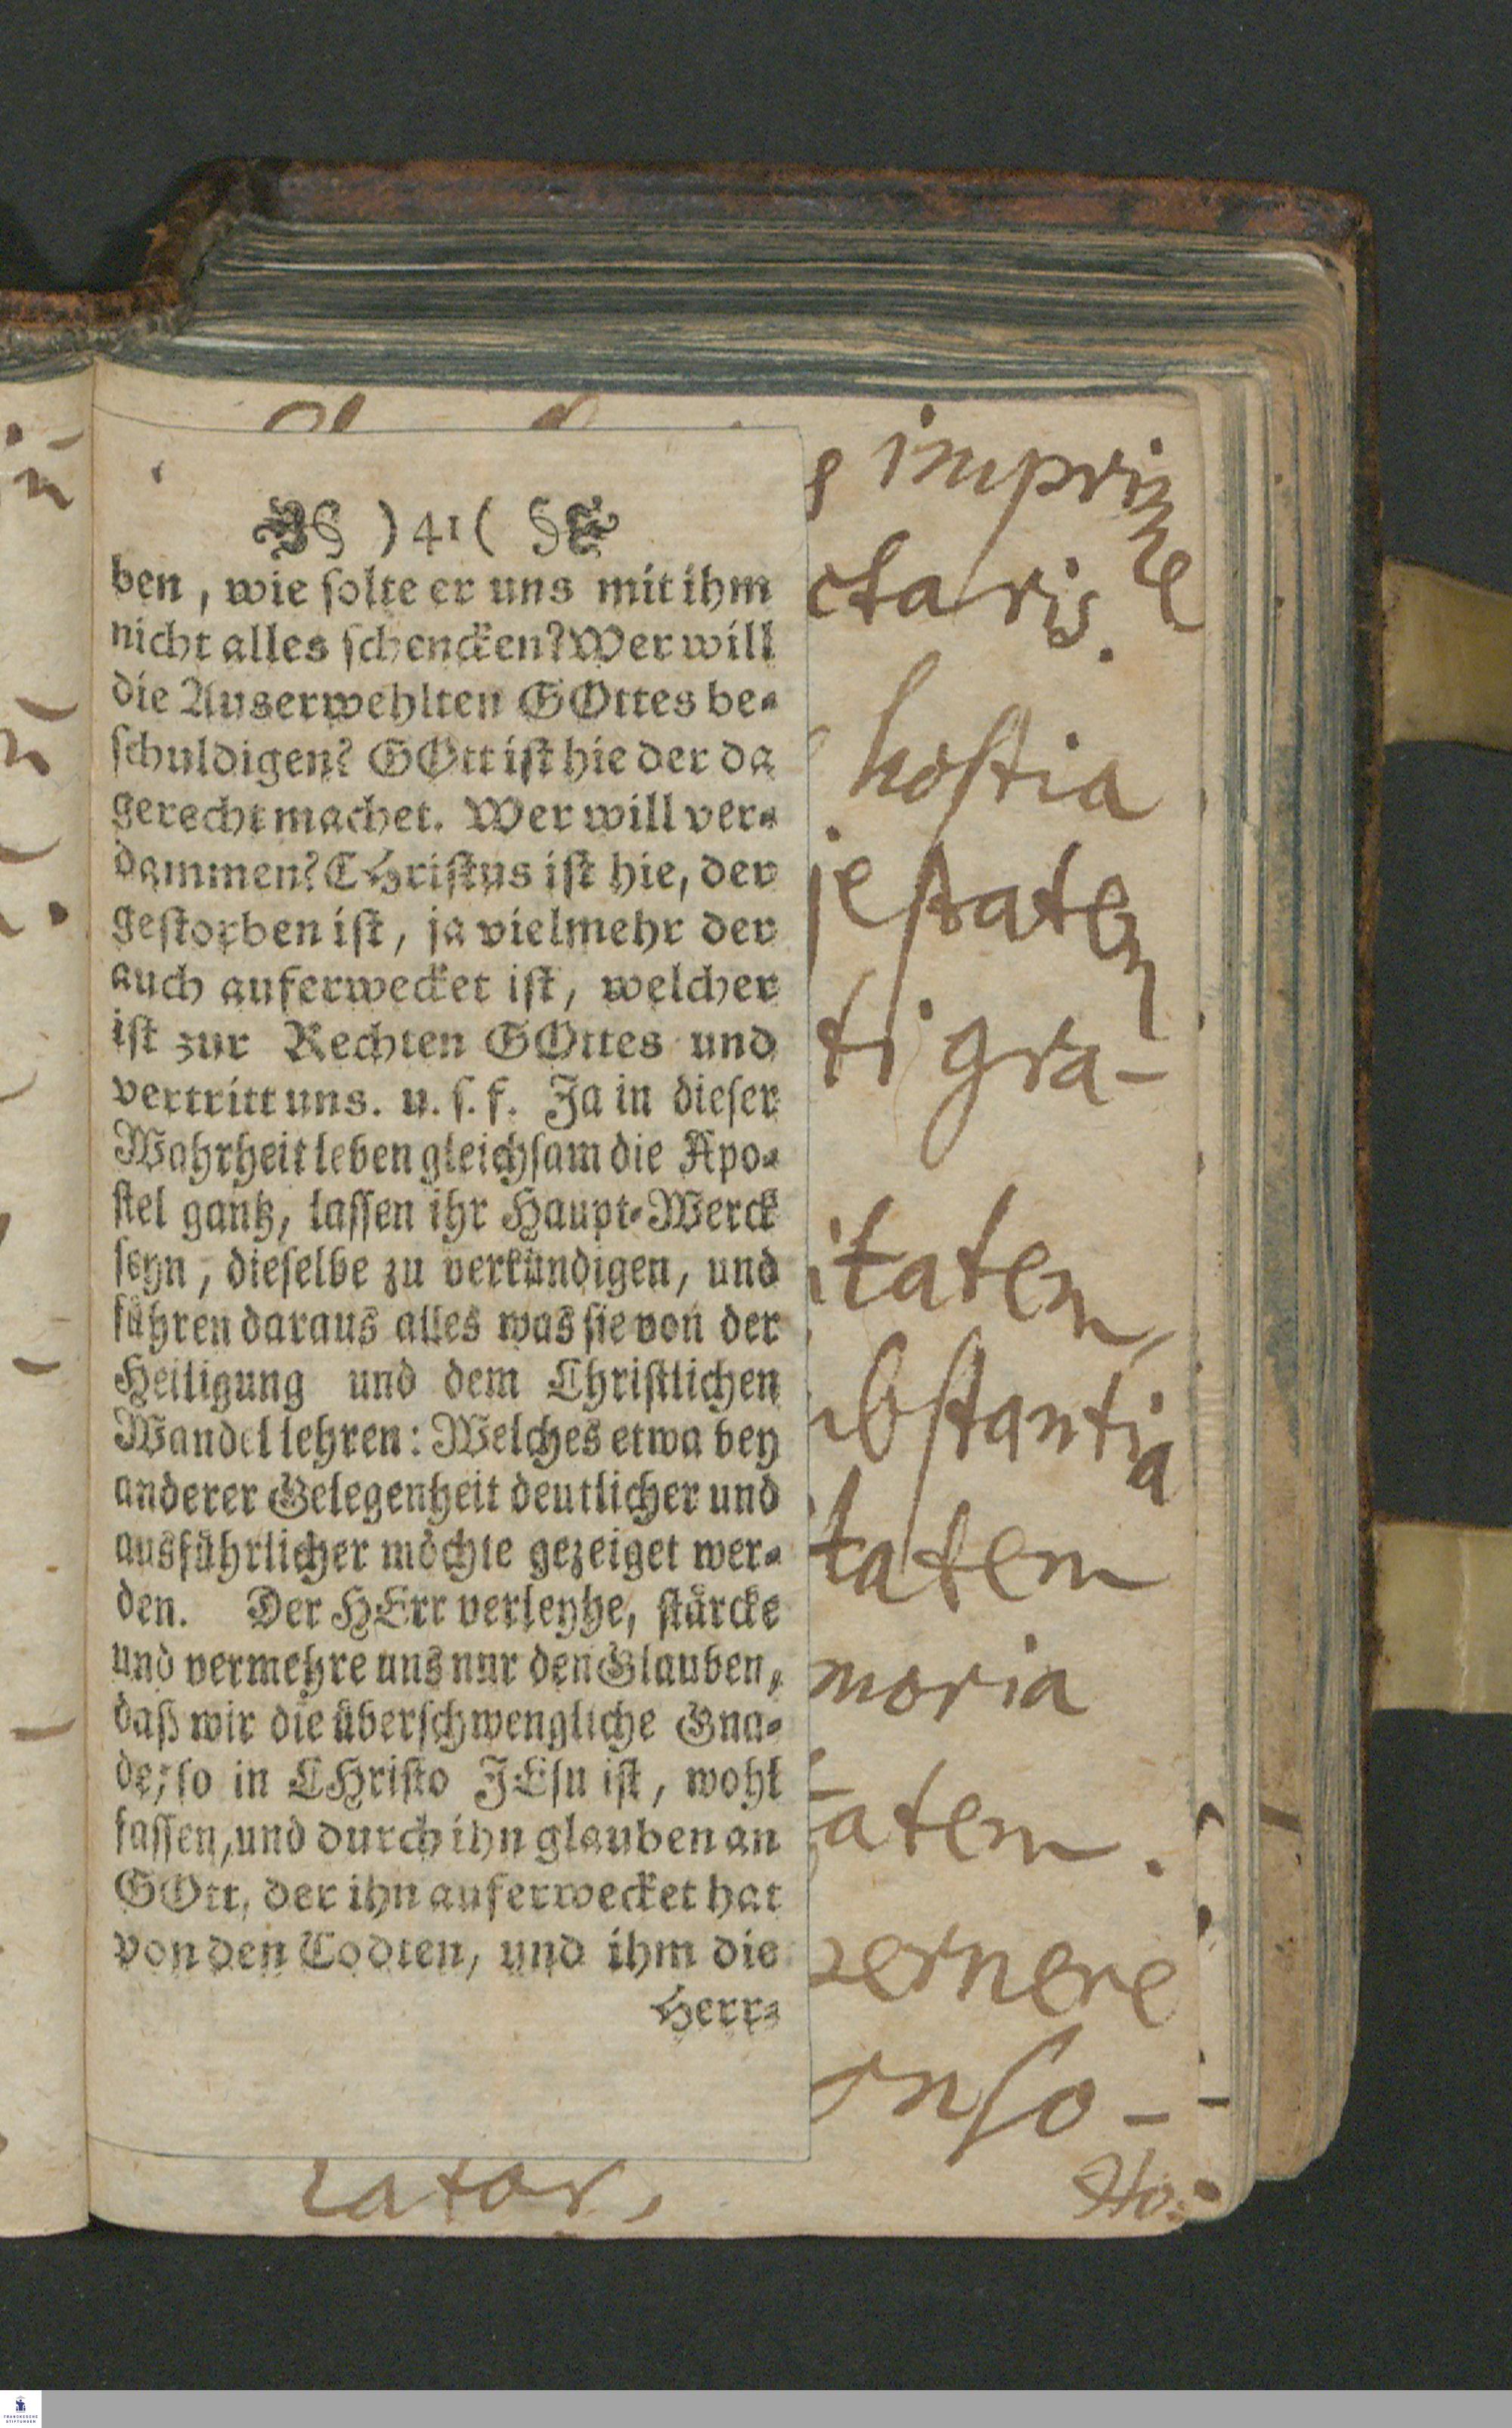 )41(
ben, wie solte er uns mit ihm
nicht alles schencken? Wer will
die Auserwehlten GOttes be-
schuldigen? GOtt ist hie der da
gerecht machet. Wer will ver-
dammen? CHristus ist hie, der
gestorben ist, ja vielmehr der
auch auferwecket ist, welcher
ist zur Rechten GOttes und
vertritt uns. u. s. f. Ja in dieser
Wahrheit leben gleichsam die Apo-
stel gantz, lassen ihr Haupt-Werck
seyn, dieselbe zu verkündigen, und
führen daraus alles was sie von der
Heiligung und dem Christlichen
Wandel lehren: Welches etwa bey
anderer Gelegenheit deutlicher und
ausführlicher möchte gezeiget wer-
den. Der HErr verleyhe, stärcke
und vermehre uns nur den Glauben,
daß wir die überschwengliche Gna-
de, so in CHristo JEsu ist, wohl
fassen, und durch ihn glauben an
GOtt, der ihn auferwecket hat
von den Todten, und ihm die
Herr-
imprime
ctaris.
hostia
jestatem
ti gra-
itatem
bstantia
tatem
moria
atem.
ernere
onso-
lator,
Ho-